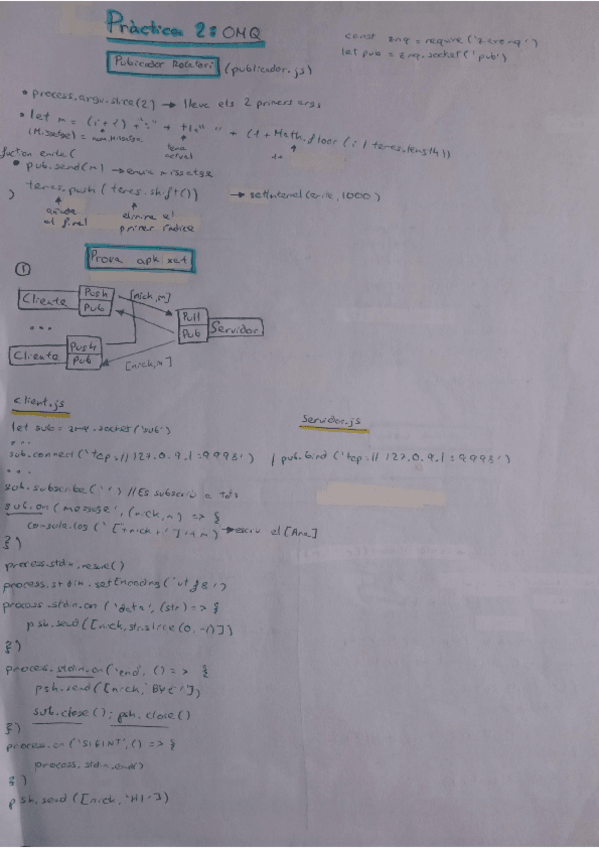 Pràctica 2: OMQ
const zmq = require('zeromq')
let pub = zmq.socket('pub')
Publicador Rotatori (publicador.js)
• process.argv.slice(2) → lleva els 2 primers args
• let m = (i+1) + ":" + + (1 + Math.floor(i / temes.length))
(Missatge) = num Missatge tema actual
function emite(
• pub.send(m) → envia missatge
temes.push(temes.shift()) → setInterval(emite, 1000)
)
añade al final
elimina el primer índice
Prova apk xat
①
Cliente Push Pub [nick, m]
Pull Pub Servidor
...
Cliente Push Pub [nick, m]
client.js
Servidor.js
let sub = zmq.socket('sub')
...
sub.connect('tcp://127.0.0.1:9998') / pub.bind('tcp://127.0.0.1:9998')
...
sub.subscribe('') // Es subscriu a Tots
sub.on('message', (nick, m) => {
console.log('['+nick+']'+m) → escriu el [Ana]
})
process.stdin.resume()
process.stdin.setEncoding('utf8')
process.stdin.on('data', (str) => {
psh.send([nick, str.slice(0, -1)])
})
process.stdin.on('end', () => {
psh.send([nick, 'BYE'])
sub.close(); psh.close()
})
process.on('SIGINT', () => {
process.stdin.end()
})
psh.send([nick, 'HI'])